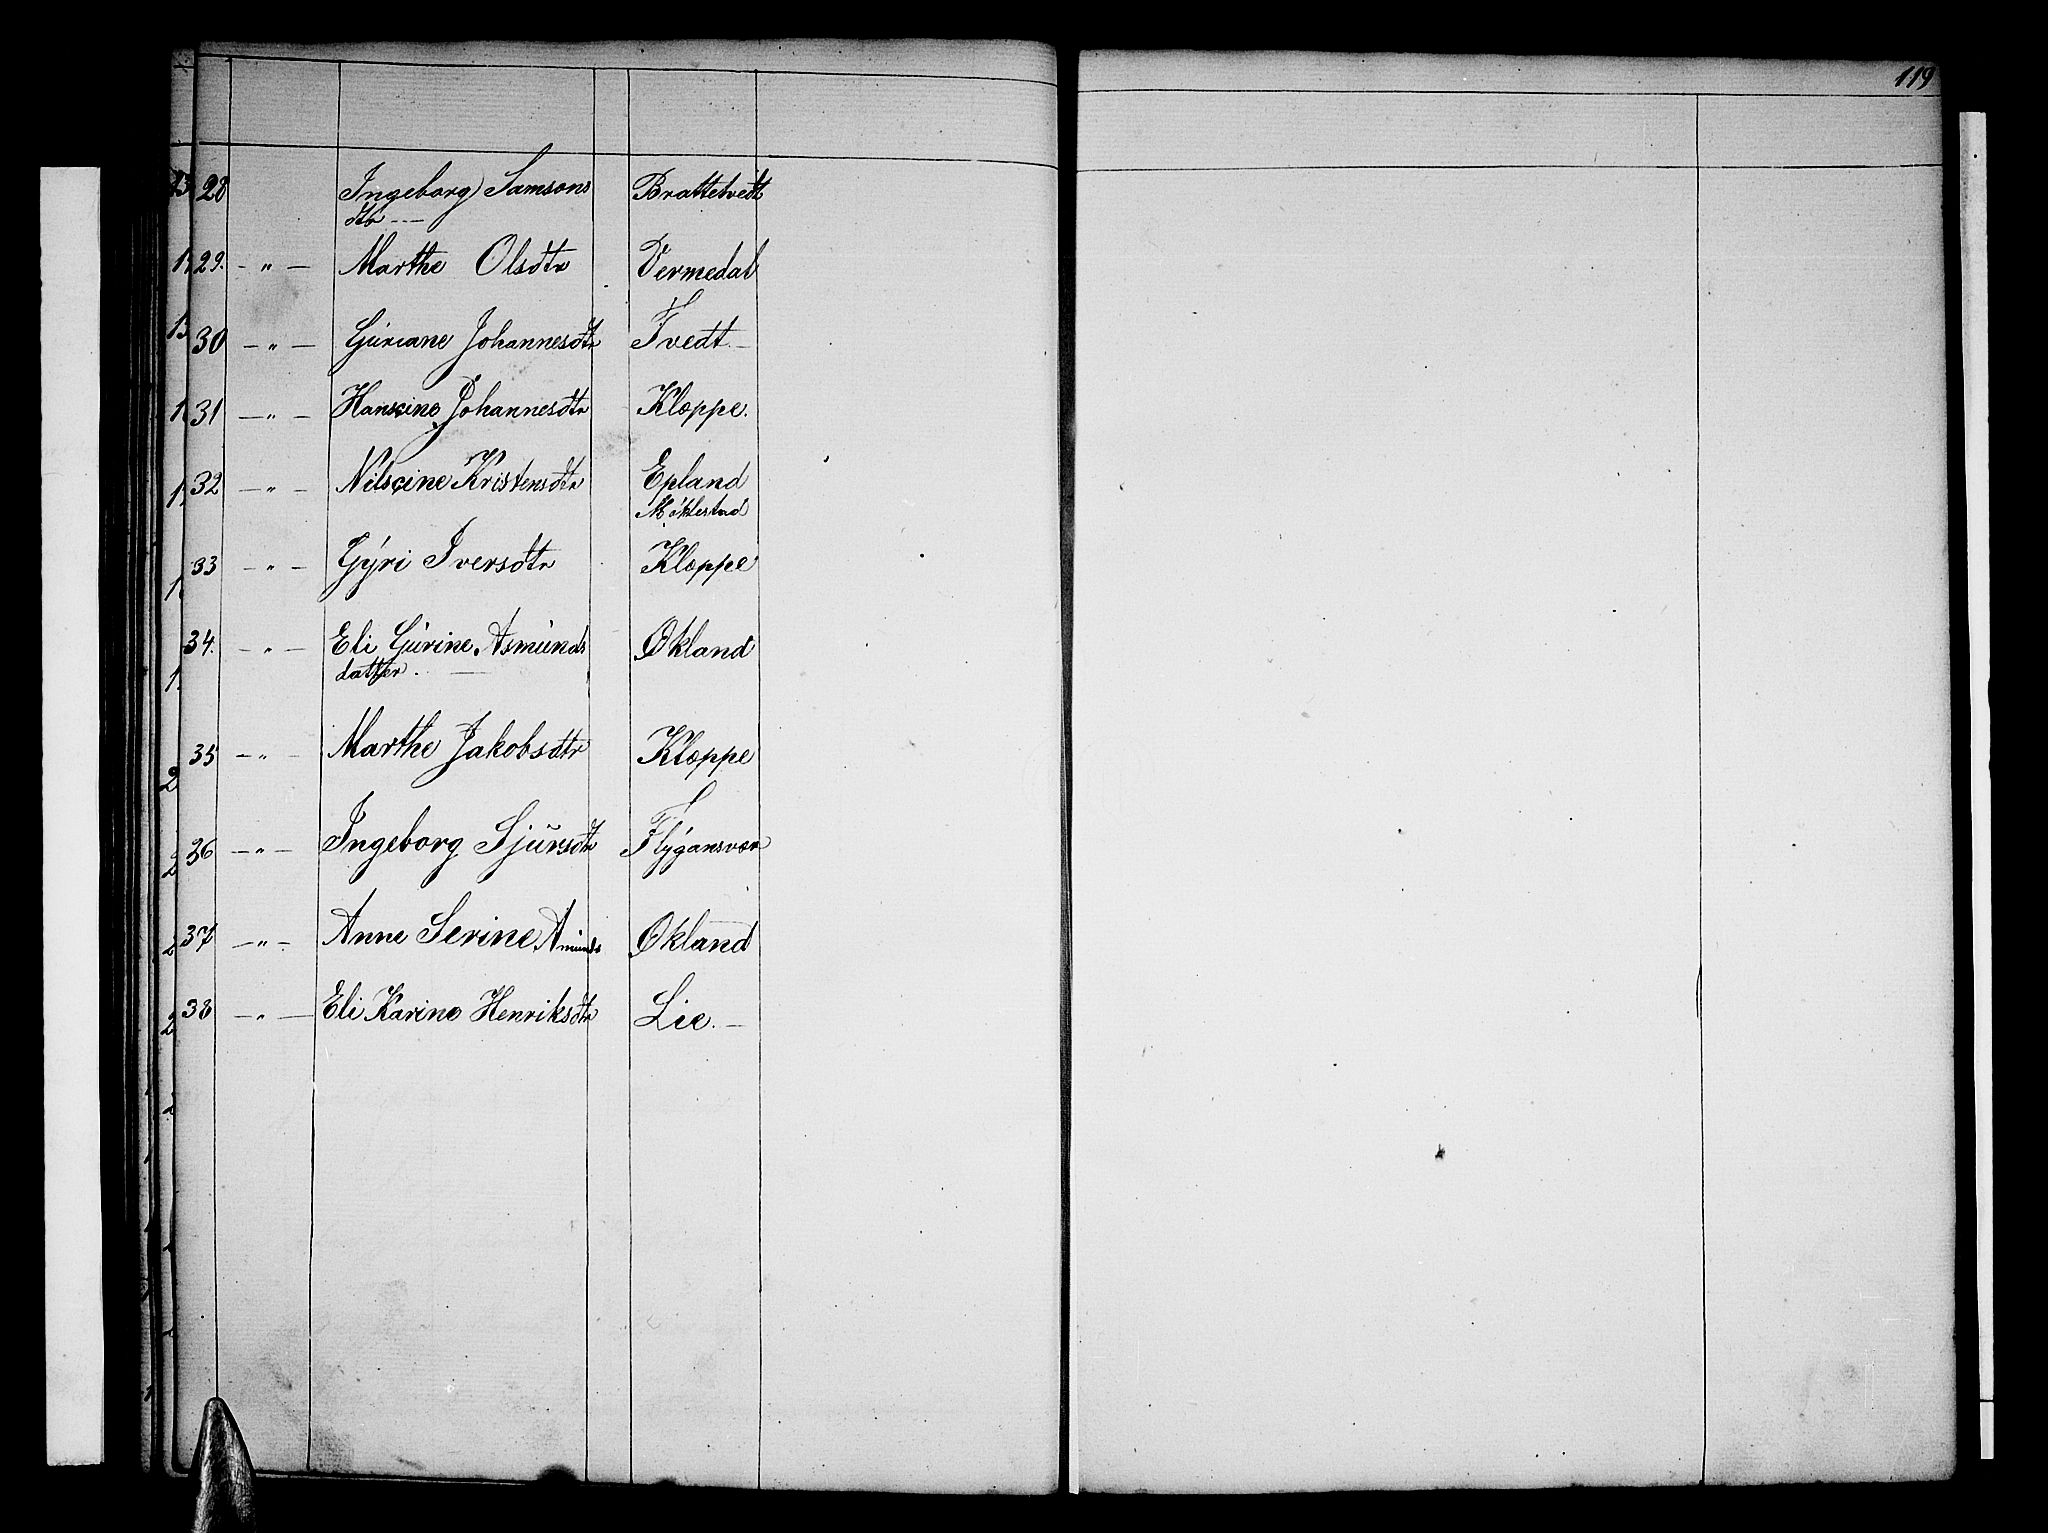 119
28 Ingeborg Samsons Brattetvedt
dtr ---
29. — " — Marthe Olsdtr Vermedal
30 — " — Gúriane Johannesdtr Tvedt. —
31 — " — Hanseine Johannesdtr Kloppe.
32 — " — Nilseine Kristensdtr Epland
Möklestad
33 — " — Gýri Iversdtr Kloppe
34. — " — Eli Gúrine Asmúnds Økland
datter. —
35 — " — Marthe Jakobsdtr Kloppe
36 — " — Ingeborg Sjúrsdtr Flýgansvær
37 — " — Anne Serine Amúnds Økland
38 — " — Eli Karine Henriksdtr Lie. —